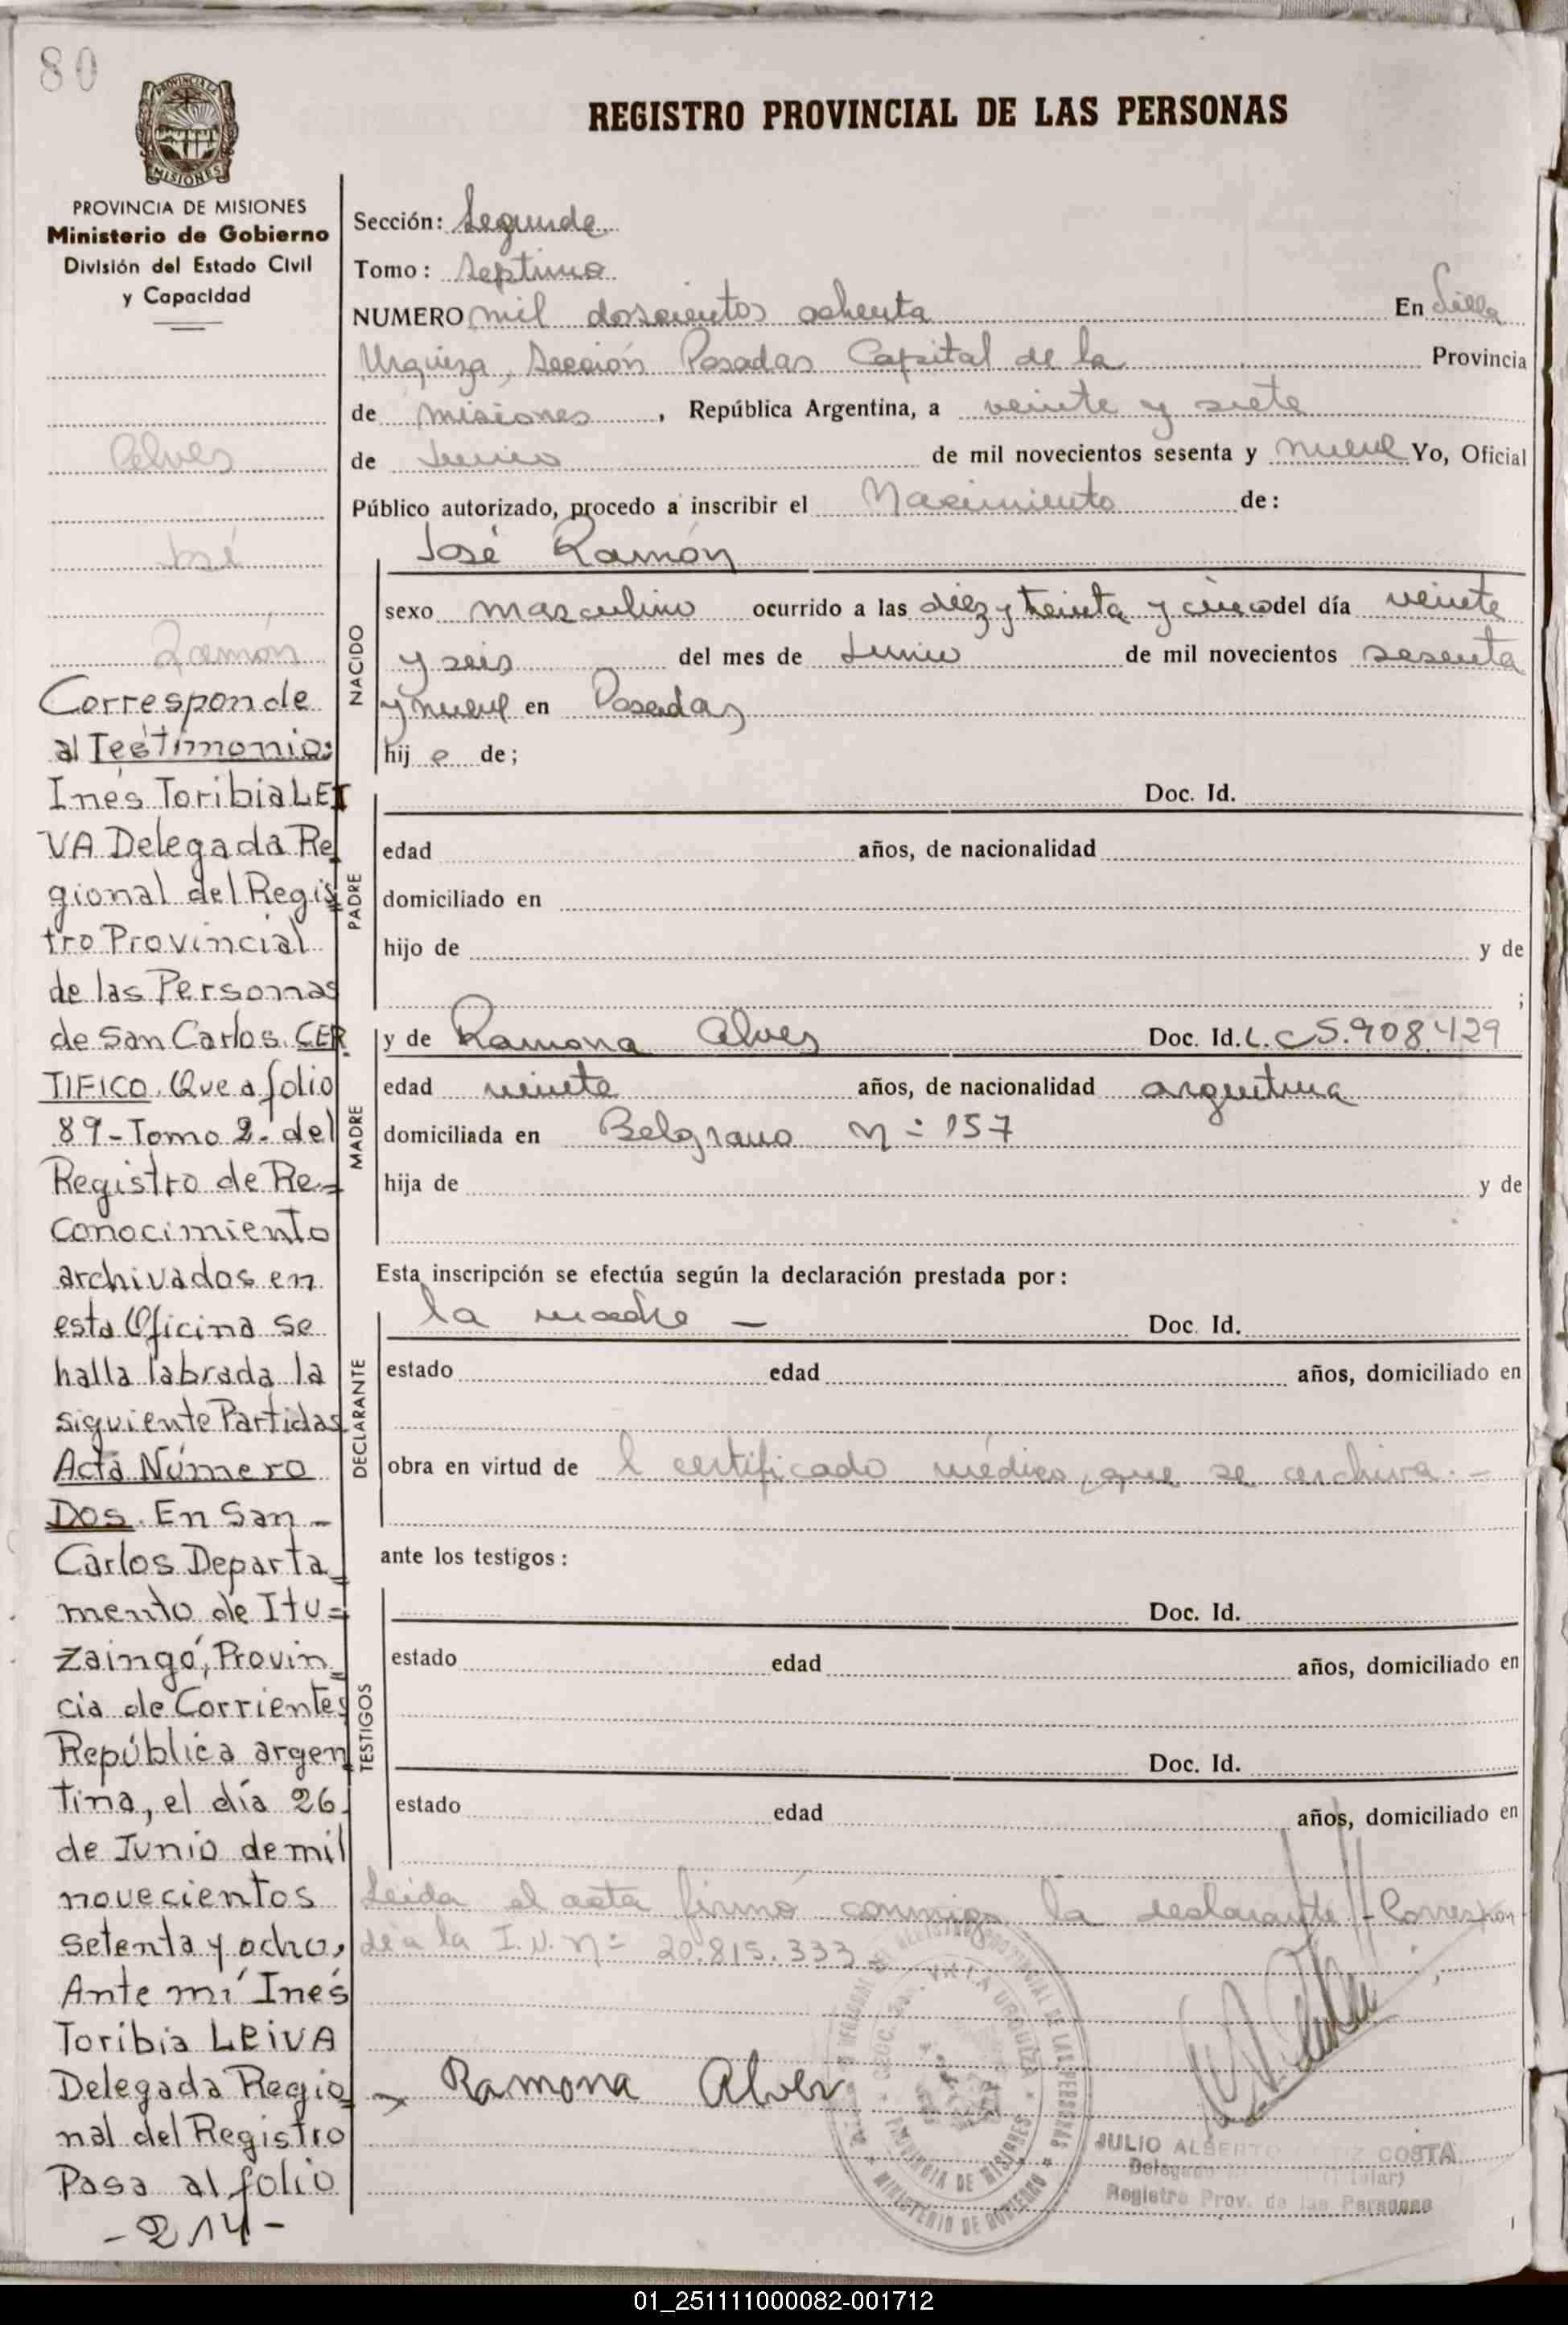 80
REGISTRO PROVINCIAL DE LAS PERSONAS
PROVINCIA DE MISIONES
Ministerio de Gobierno
División del Estado Civil
y Capacidad
Alves
José
Ramón
Corresponde
al Testimonio:
Inés Toribia LEI
VA Delegada Re
gional del Regis
tro Provincial
de las Personas
de San Carlos. CER
TIFICO. Que a folio
89-Tomo 2. del
Registro de Re=
conocimiento
archivados en
esta Oficina se
halla labrada la
siguiente Partidas
Acta Número
Dos. En San-
Carlos Departa=
mento de Itu=
zaingó, Provin=
cia de Corrientes
República argen
tina, el día 26
de Junio de mil
novecientos
setenta y ocho,
Ante mí Inés
Toribia LEIVA
Delegada Regio=
nal del Registro
Pasa al folio
-214-
Sección: Segunda
Tomo: Septimo
NUMERO mil doscientos ochenta En Villa
Urquiza, Sección Posadas Capital de la Provincia
de Misiones, República Argentina, a veinte y siete
de Junio de mil novecientos sesenta y nueve Yo, Oficial
Público autorizado, procedo a inscribir el Nacimiento de:
José Ramón
NACIDO
sexo masculino ocurrido a las diez y treinta y cinco del día veinte
y seis del mes de Junio de mil novecientos sesenta
y nueve en Posadas
hij o de;
PADRE
Doc. Id.
edad años, de nacionalidad
domiciliado en
hijo de y de
;
MADRE
y de Ramona Alves Doc. Id. L.C 5.908.429
edad veinte años, de nacionalidad argentina
domiciliada en Belgrano N= 157
hija de y de
Esta inscripción se efectúa según la declaración prestada por:
DECLARANTE
la madre - Doc. Id.
estado edad años, domiciliado en
obra en virtud de l certificado médico, que se archiva.-
ante los testigos:
TESTIGOS
Doc. Id.
estado edad años, domiciliado en
Doc. Id.
estado edad años, domiciliado en
Leida el acta firmó conmigo la declarante - Correspon
de a la I.N. N= 20.815.333
Ramona Alves
VILLA URQUIZA
PROVINCIA DE MISIONES
REGISTRO PROVINCIAL DE LAS PERSONAS
MINISTERIO DE GOBIERNO
JULIO ALBERTO COSTA
Registro Prov. de las Personas
01_251111000082-001712